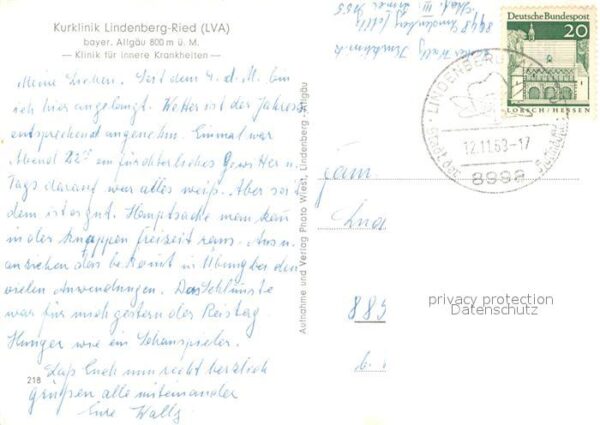 Kurklinik Lindenberg-Ried (LVA)
bayer. Allgäu 800 m ü. M.
— Klinik für innere Krankheiten —
Meine Lieben. Seit dem 4. d. M. bin
ich hier angelangt. Wetter ist der Jahresz
entsprechend angenehm. Einmal war
Abend 22° ein fürchterliches Gewitter u.
Tags darauf war alles weiß. Aber seit
dem ist es gut. Hauptsache man kan
in der knappen Freizeit raus. Aus u.
anziehen das bekommt in Übung bei den
vielen Anwendungen. Das Schlimmste
war für mich gestern der Reistag
Hunger wie ein Schauspieler.
Laßt Euch nun recht herzlich
grüßen alle miteinander
Eure Wally
218
Aufnahme und Verlag Photo Wiest, Lindenberg - Allgäu
Deutsche Bundespost
20
LORSCH/HESSEN
LINDENBERG
12.11.68-17
8998
Fam.
885
privacy protection
Datenschutz